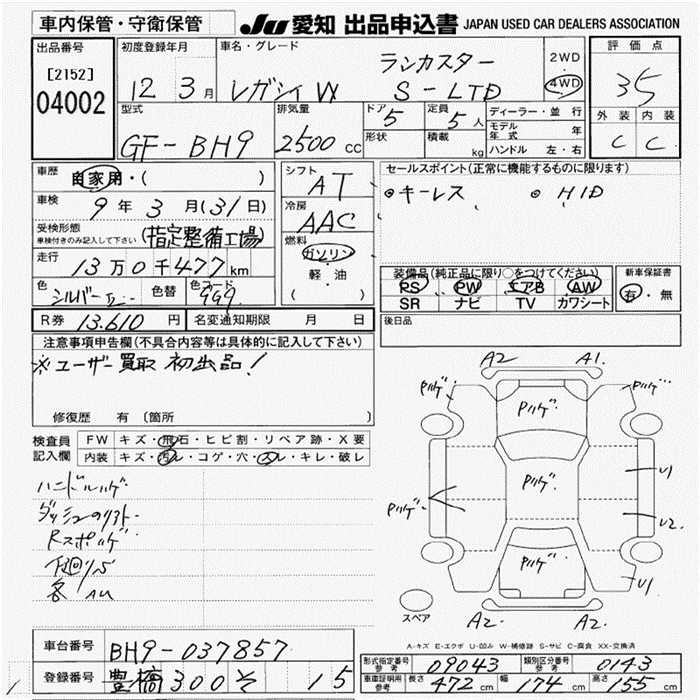 車内保管・守衛保管
JU 愛知 出品申込書 JAPAN USED CAR DEALERS ASSOCIATION
出品番号
[2152]
04002
初度登録年月
12 3月
車名・グレード
レガシィW ランカスター
S-LTD
2WD
・
4WD
評価点
35
外装 内装
C C
型式
GF-BH9
排気量
2500 CC
ドア 5
形状
定員 5人
積載 kg
ディーラー・並行
モデル年式 年
ハンドル 左・右
車歴
自家用・( )
車検
9年3月(31日)
受検形態
車検付きのみ記入して下さい
(指定整備工場)
走行
13万0千477km
色
シルバー
色替
色コード
999
シフト
AT
冷房
AAC
燃料
ガソリン
軽・油
( )
セールスポイント(正常に機能するものに限ります)
◎キーレス ◎HID
装備品(純正品に限り○をつけてください)
PS PW エアB AW
SR ナビ TV カワシート
新車保証書
有・無
R券 13,610円
名変通知期限 月 日
後日品
注意事項申告欄(不具合内容等は具体的に記入して下さい)
※ユーザー買取 初出品!
修復歴 有 〔箇所
検査員
記入欄
FW キズ・飛石・ヒビ割・リペア跡・X要
内装 キズ・汚レ・コゲ・穴・スレ・キレ・破レ
ハンドルハゲ
各 AU
A2 A1
Pハゲ Pハゲ Pハゲ
Pハゲ Pハゲ U1
U2
Pハゲ U1
A2 A2
スペア
A-キズ E-エクボ U-凹み W-補修跡 S-サビ C-腐食 XX-交換済
車台番号
BH9-037857
登録番号
豊橋300そ 15
形式指定番号
参考
09043
類別区分番号
参考
0143
車庫証明用
参考
長さ 472cm 幅 174cm 高さ 155cm